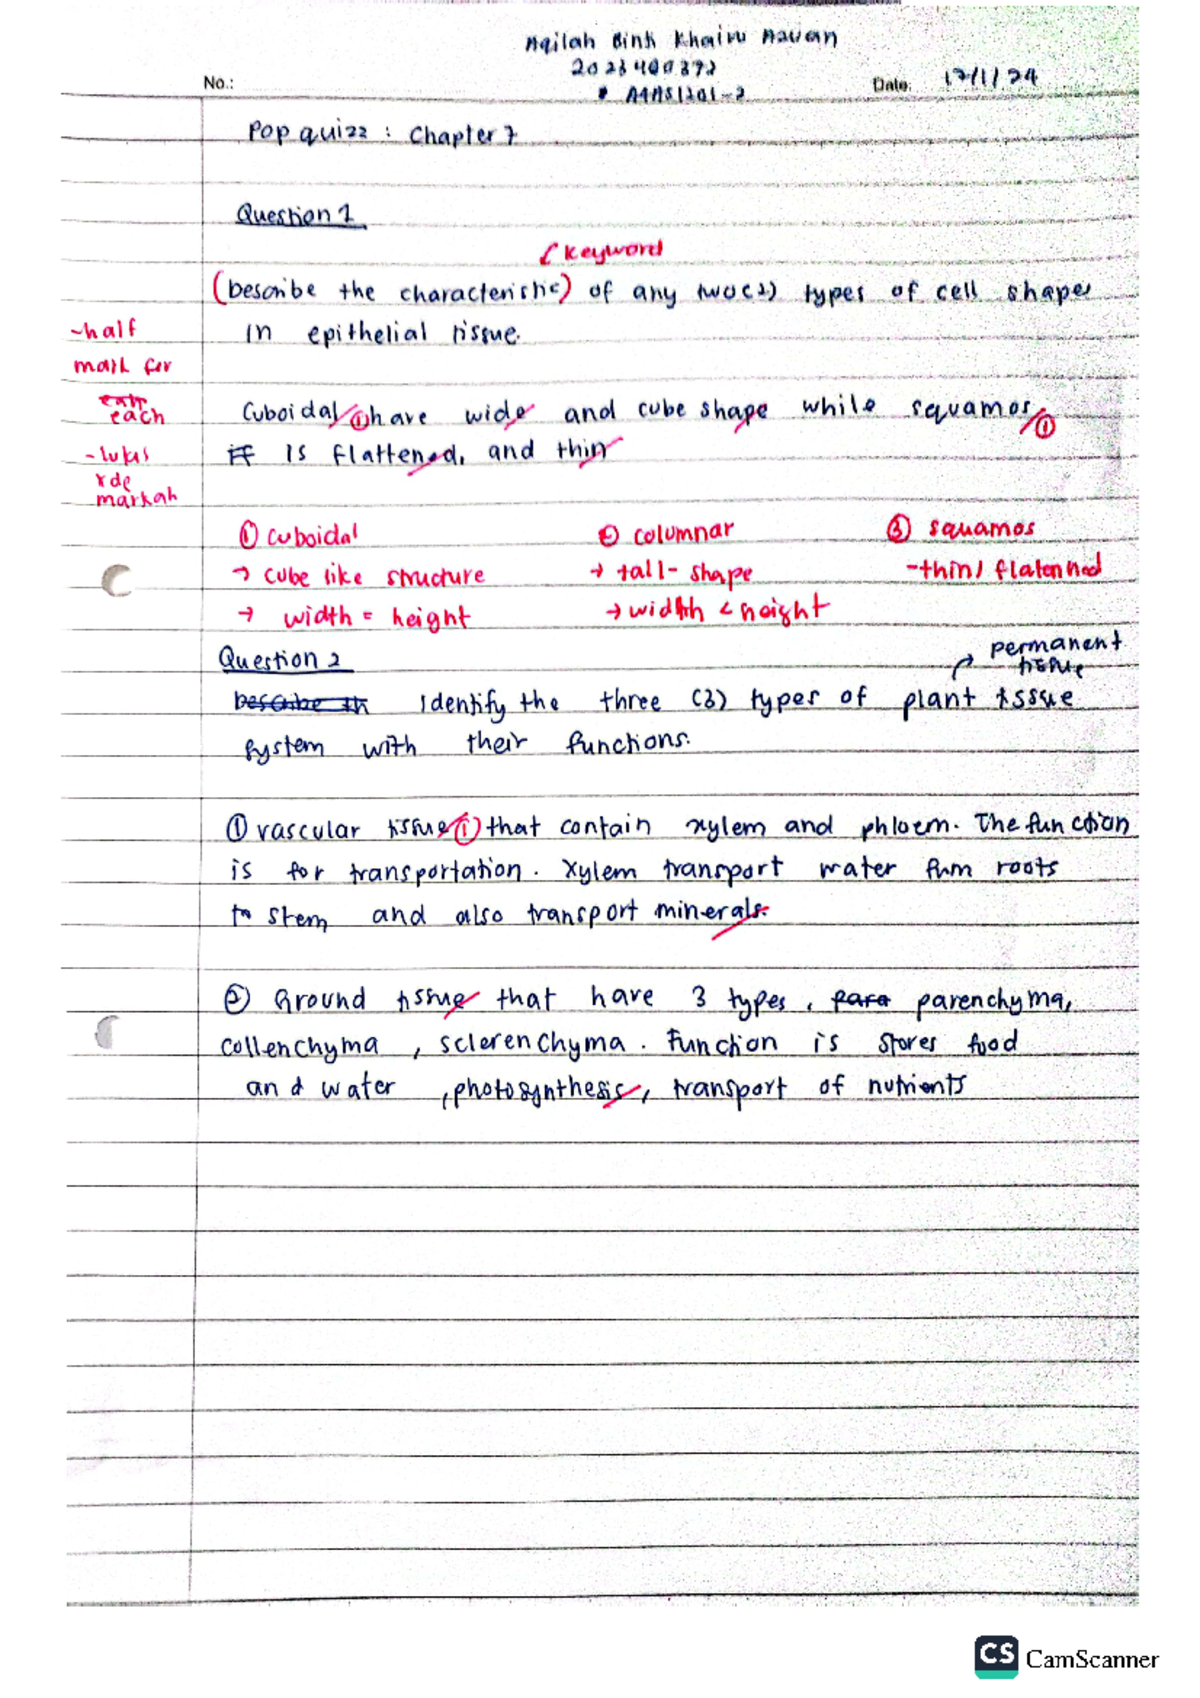 Aqilah Binti Khairu Azuan
2023400392
No.:
Date: 17/1/24
AMAS1201-2
Pop quizz : Chapter 7
Question 1
keyword
(Describe the characteristic) of any two(2) types of cell shape
in epithelial tissue.
-half
mark for
each
Cuboidal ① have wide and cube shape while squamos ①
is flattened, and thin
-lukis
xde
markah
① cuboidal ② columnar ③ squamos
→ cube like structure → tall-shape -thin/flatenned
→ width = height → width < height
Question 2
permanent
tissue
Identify the three (3) types of plant tissue
system with their functions.
① vascular tissue ① that contain xylem and phloem. The function
is for transportation. Xylem transport water from roots
to stem and also transport minerals.
② Ground tissue that have 3 types, para parenchyma,
collenchyma, sclerenchyma. Function is stores food
and water, photosynthesis, transport of nutrients
CS CamScanner